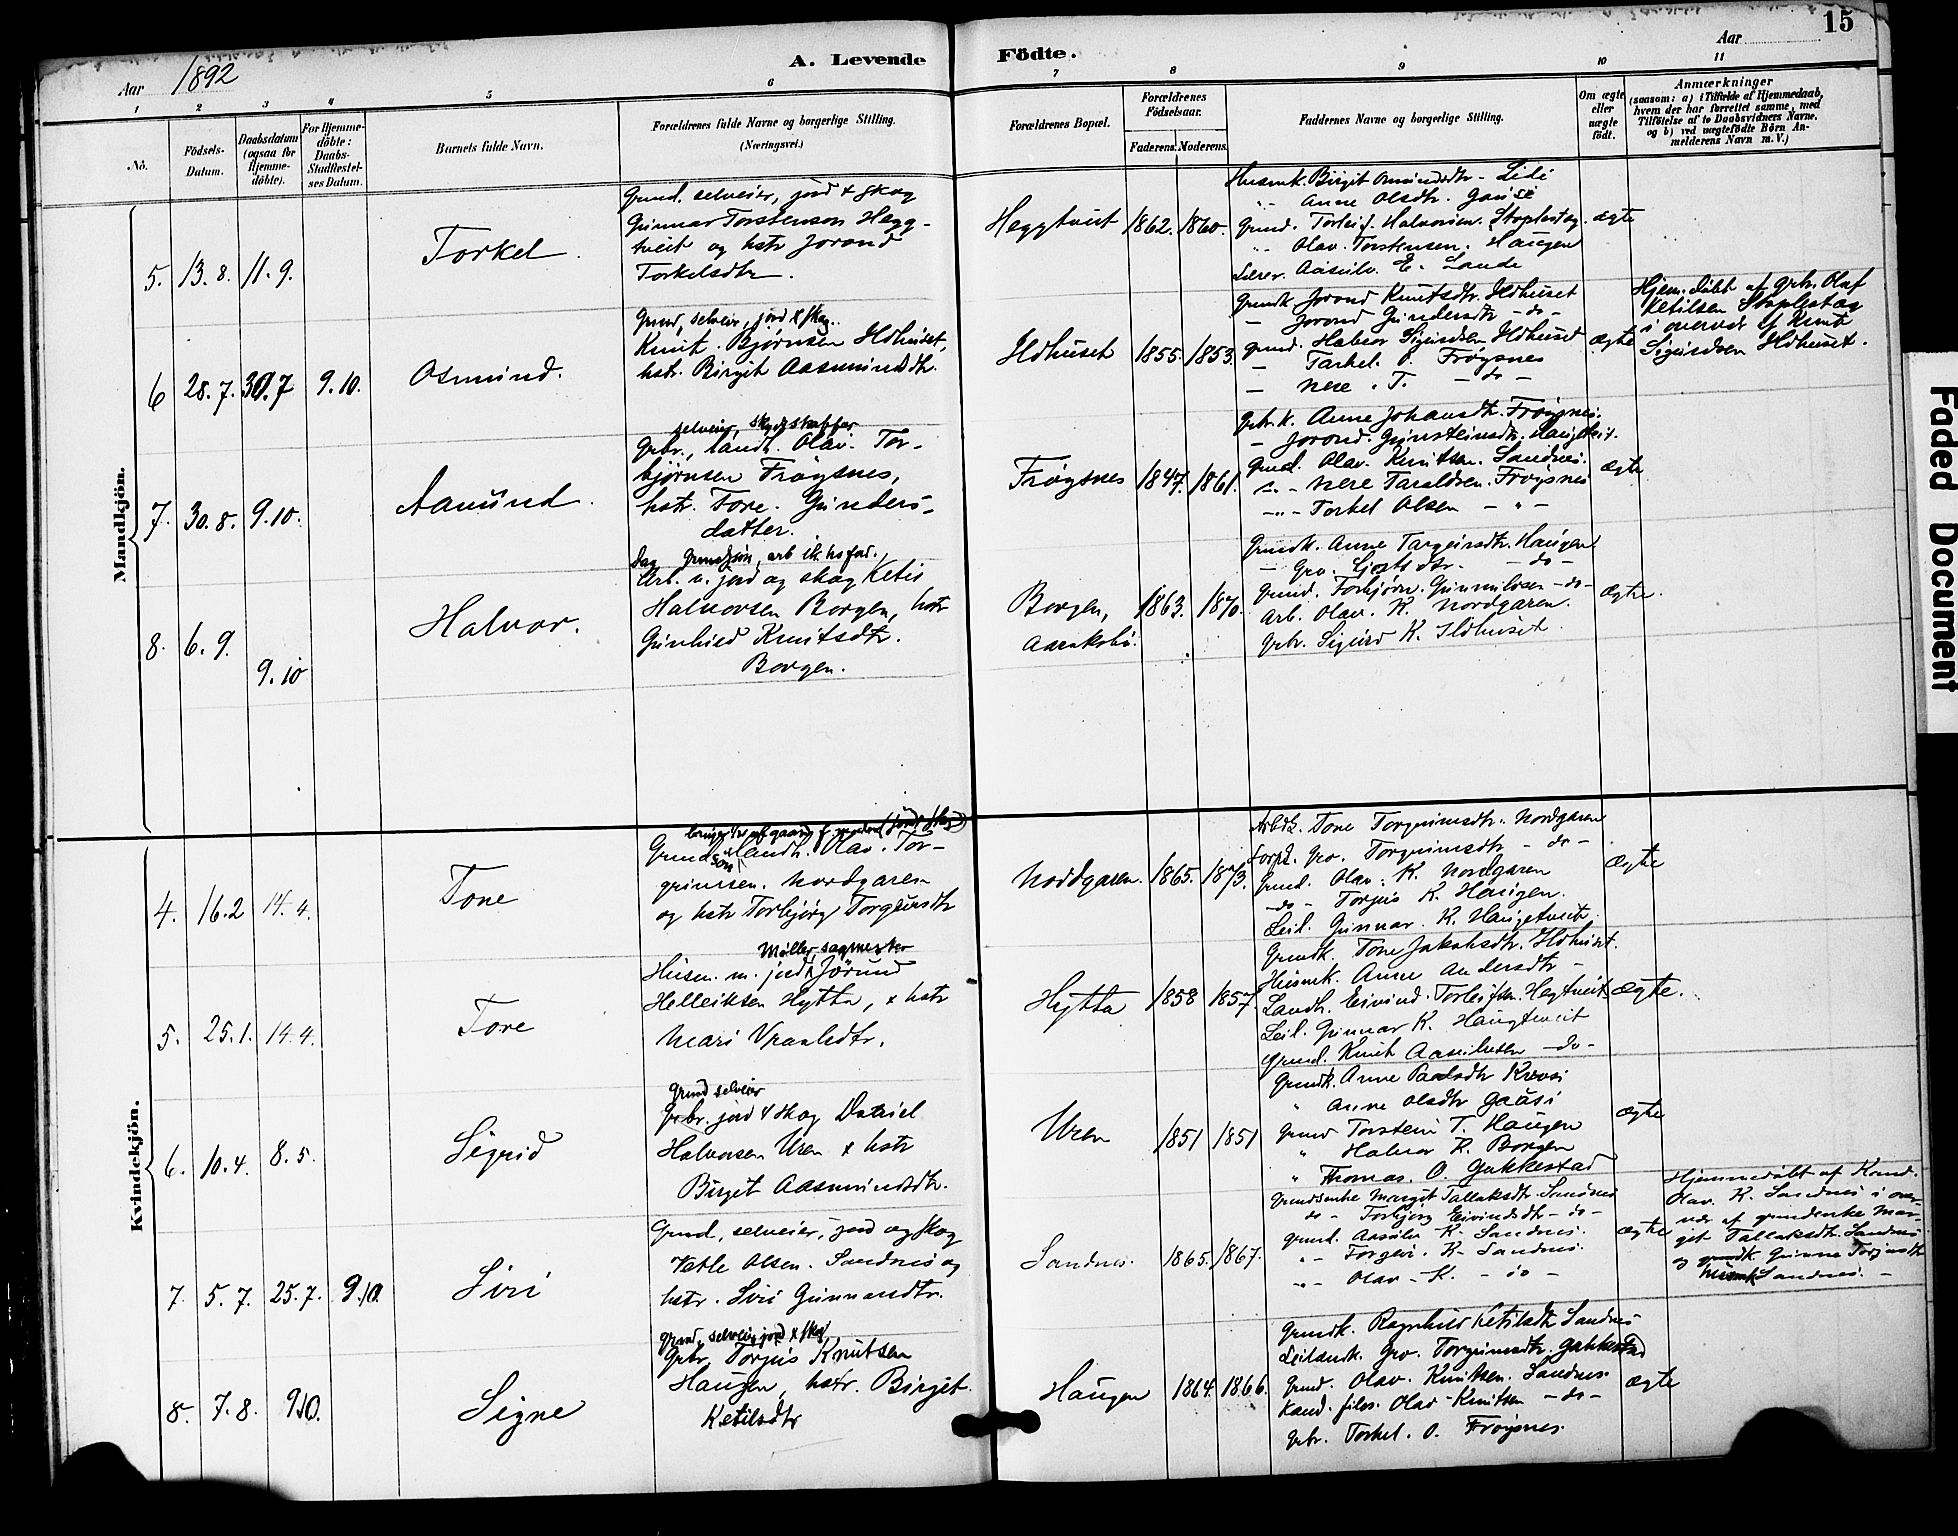 15
Aar 1892
A. Levende Födte.
Aar
1 2 3 4 5 6 7 8 9 10 11
No.
Födsels-Datum.
Daabsdatum (ogsaa for Hjemme-döbte).
For Hjemme-döbte: Daabs-Stadfæstel-ses Datum.
Barnets fulde Navn.
Forældrenes fulde Navne og borgerlige Stilling.
(Næringsvei.)
Forældrenes Bopæl.
Forældrenes Födselsaar.
Faderens. Moderens.
Faddernes Navne og borgerlige Stilling.
Om ægte eller uægte födt.
Anmærkninger
(saasom: a) i Tilfælde af Hjemmedaab,
hvem der har forrettet samme, med
Tilföielse af to Daabsvidners Navne,
og b) ved uægtefödte Börn An-
melderens Navn m. V.)
Mandkjön.
5. 13.8. 11.9.
Torkel.
Grund. selveier, jord & skog
Gunnar Torstenson Hegg-
tveit og hstr Jorand
Torkelsdtr.
Heggtveit 1862. 1860.
Husmk. Birgit Omundsdtr - Lidi
"- Anne Olsdtr. Gausi
Grund. Torleif. Halvorsen.
"- Olav. Torstensen. Haugen
Lærer. Aasulv. E. Lande
ægte
6 28.7. 30.7 9.10.
Osmund.
Grund, selveier, jord & skog.
Knut. Bjørnsen Ildhuset,
hstr. Birgit Aasmundsdtr.
Ildhuset 1855. 1853.
Grundk. Jorond Knutsdtr. Ildhuset
- Jorond Gundersdtr -do-
Grund. Halvor Sigurdsen Ildhuset
- Tarkel. O. Frøysnes
- Nere. T. - do -
ægte
Hjem.døbt af gbr. Olaf
Ketilsen
i overvær af Knut
Sigurdsen Ildhuset.
7. 30.8. 9.10.
Aamund.
selveier, skydsskaffer
Gbr., landh. Olav. Tor-
bjørnsen Frøysnes,
hstr. Tore. Gunders-
datter.
Frøysnes 1847. 1861.
Gbr.k. Anne Johansdtr. Frøysnes.
- Jorond. Gunsteinsdtr. Haugtveit.
Grund. Olav. Knutsen. Sandnes.
-"- Nere Taraldsen. Frøysnes
-"- Torkel Olsen - " -
ægte
8. 6.9. 9.10
Halvor.
Arb. v. jord og skog Ketil
Halvorsen Borgen, hstr
Gunhild Knutsdtr.
Borgen.
Borgen, 1863. 1870.
Grundk. Anne Targeirsdtr. Haugen
- Gro. - do -
Grund. Torbjørn. Gunnulvsen -do-
Arb. Olav. K. Nordgaren.
Gbr. Sigurd K. Ildhuset.
ægte.
Kvindekjön.
4. 16.2 14.4.
Tone
Grund landh. Olav. Tor-
grimsen. Nordgaren
og hstr Torbjørg Torgeirsdtr
Nordgaren. 1865. 1873.
Arbdk. Tone Torgrimsdtr. Nordgaren
Gro. Torgrimsdtr - do -
Grund. Olav. K. Nordgaren
-do- Torjus K. Haugen.
Leil. Gunnar. K. Haugetveit.
Ægte
5. 25.1. 14.4.
Tore
Møller, sagmester
Husm. m. jord Jörund
Helleiksen Hytta, & hstr
Mari Vraalsdtr.
Hytta 1858 1857.
Grundk. Tone Jakobsdtr. Ildhuset.
Husmk. Anne Andersdtr -
Landh. Eivind. Torleifsen. Hegtveit
Leil. Gunnar K. Haugtveit
Grund. Knut Aasulvsen -do-
Ægte.
6. 10.4. 8.5.
Sigrid
Grund selveier
Gbr. jord & skog Daniel
Halvorsen Uren & hstr
Birgit Aasmundsdtr.
Uren 1851 1851
Grundk. Anne Paalsdtr Krosi
" Anne Olsdtr Gausi
Grund Torstein T. Haugen
" Halvor K. Borgen
" Thomas. O. Gukkestad
Ægte
7. 5.7. 25.7. 9.10.
Siri
Grund, selveier, jord og skog
Vetle Olsen. Sandnes og
hstr. Siri Gunnarsdtr.
Sandnes. 1865. 1867.
Grundsenke Margit Tallaksdtr. Sandnes
do - Torbjørg Eivindsdtr - do -
Grund. Aasulv K. Sandnes.
"- Torgeir. K. Sandnes.
-"- Olav - K. - do -
ægte
Hjemmedøbt af Kand.
Olav. K. Sandnes i over-
vær af grundenke Mar-
git Tallaksdtr. Sandnes
Gunne Torjusdtr
Husmk Sandnes. -
8. 7.8. 9.10.
Signe
Grund, selveier jord & skog
Gbr. Torjus Knutsen
Haugen, hstr. Birgit
Ketilsdtr
Haugen 1864. 1866.
Grundk. Ragnhild Ketilsdtr Sandnes
Leilændk. Gro. Torgrimsdtr. Gukkestad
Grund. Olav. Knutsen. Sandnes.
Kand. filos. Olav - Knutsen - do -
Gbr. Torkel. O. Frøysnes.
ægte
Faded Document